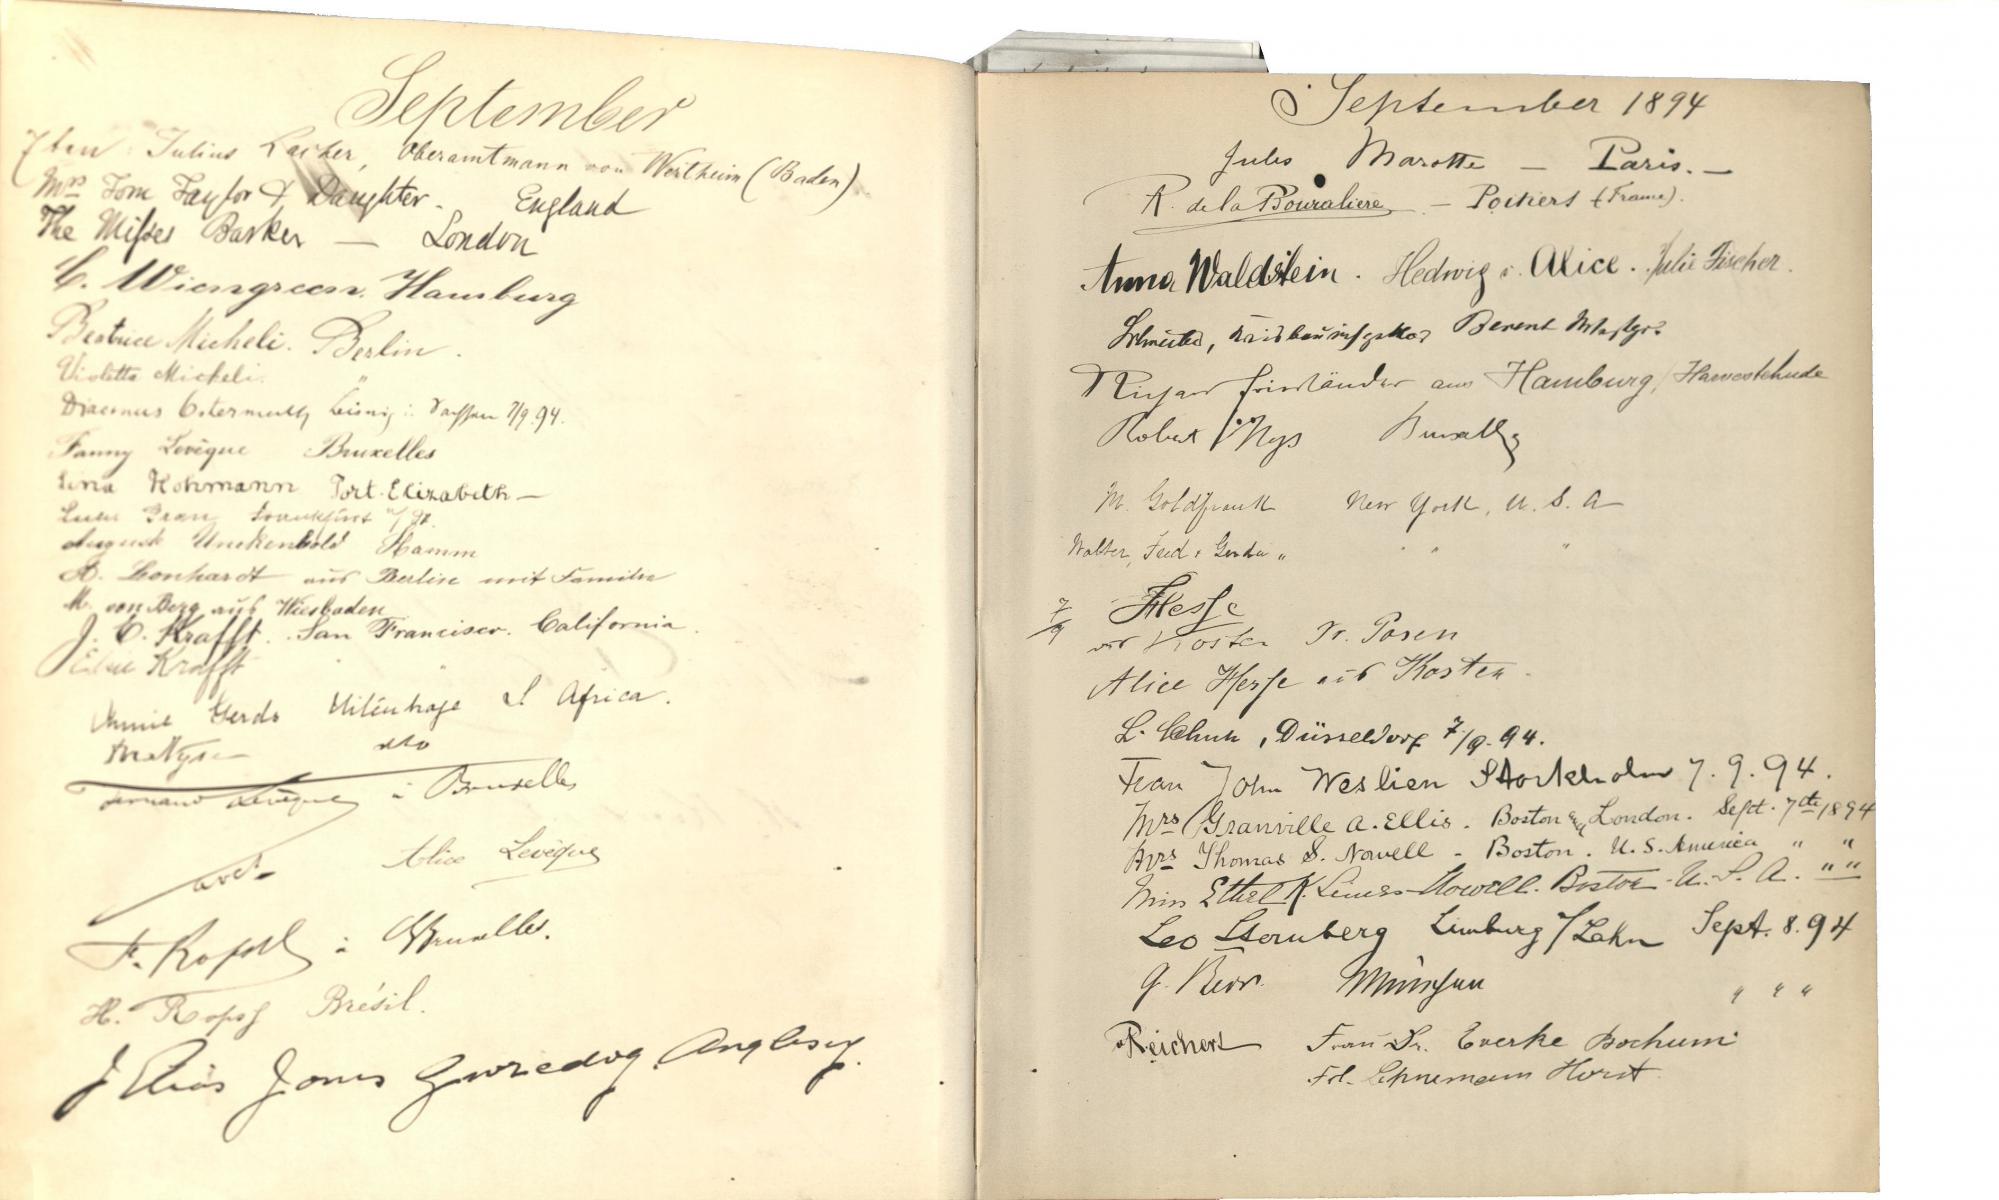 September
7ten Julius Lacher, Oberamtmann von Wertheim (Baden)
Mrs Tom Taylor & Daughter. England
The Misses Barker — London
C. Wiengreen. Hamburg
Beatrice Micheli. Berlin.
Violetta Micheli. "
Diaconus Ostermuth, Leisnig i. Sachsen 7/9. 94.
Fanny Levêque Bruxelles
Lina Kohmann Port-Elizabeth —
Frankfurt
August Unckenbold Hamm
A. Leonhardt aus Berlin mit Familie
M. von Berg aus Wiesbaden
J. C. Krafft. San Francisco. California.
Elsie Krafft " "
Annie Gerds Uitenhage S Africa.
dto
Fernand Levêque à Bruxelles
Alice Levêque
à Bruxelles.
H. Rops Brésil.
J Elias Jones Gwredog Anglesey.
September 1894
Jules Marotte — Paris. —
R. de la Bouralière — Poitiers (France).
Anna Waldstein. Hedwig u. Alice. Julie Fischer.
Berent
Friedländer aus Hamburg/Harvestehude
Robert Nys Bruxelles
M. Goldfrank New York, U. S. A
Walter, Fred & Gerda " " " "
7/9 Hesse
aus Kosten Pr. Posen
Alice Hesse aus Kosten.
Düsseldorf 7/9. 94.
Frau John Weslien Stockholm 7. 9. 94.
Mrs Granville A. Ellis. Boston & London. Sept. 7th 1894
Mrs Thomas S. Nowell - Boston. U. S. America " "
Miss Ethel K. Nowell. Boston - U. S. A. " "
Leo Sternberg Limburg/Lahn Sept. 8. 94
München " " "
Reichert Frau Dr. Everke Bochum
Frl. Schünemann Horst